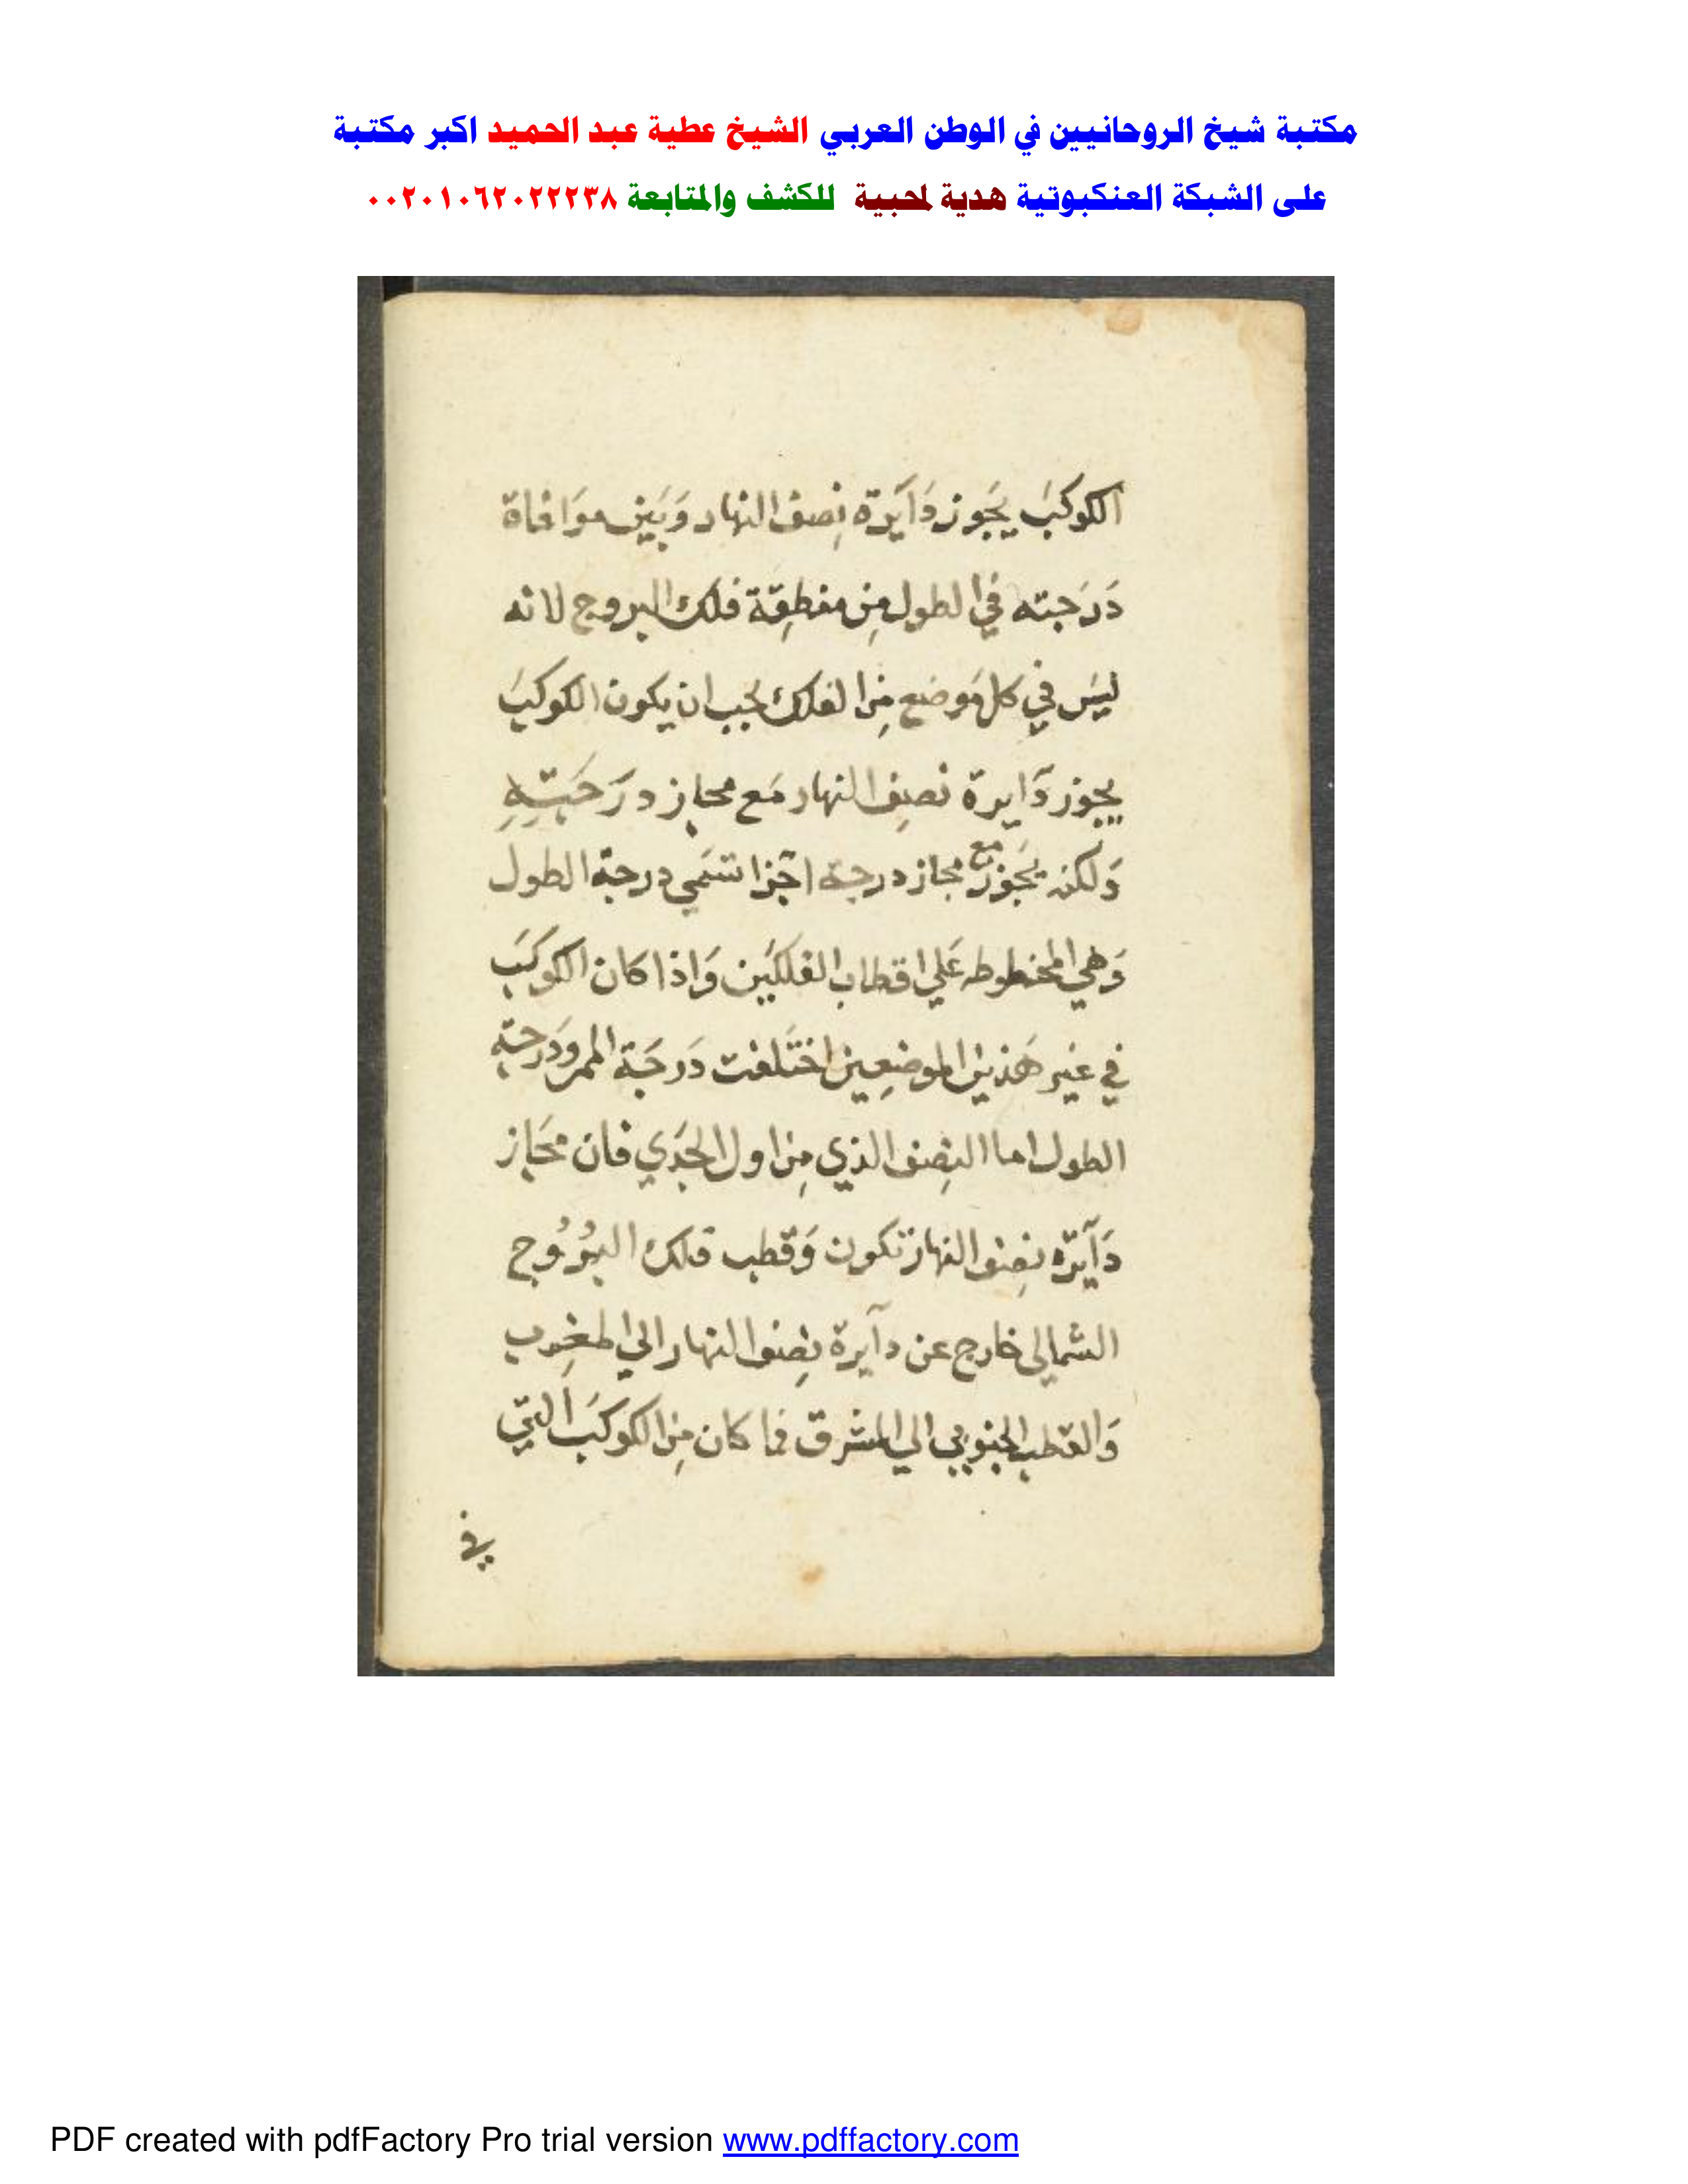 مكتبة شيخ الروحانيين في الوطن العربي الشيخ عطية عبد الحميد اكبر مكتبة
على الشبكة العنكبوتية هدية لمحبية للكشف والمتابعة ٠٠٢٠١٠٦٢٠٢٢٢٣٨
الكوكبَ يجَوز دَآيَرة نِصف النهار وَبَين موَافاة
دَرَجته في الطول مِن منطِقَة فلك البروج لانه
ليسَ في كل مَوضع مِن الفلك يجب ان يكون الكوكبَ
يجوز دَآيرة نصِف النهار مَع مجاز درَجَتِهِ
وَلكنه يجَوز مع مجاز درجة اجزا تسَمي درجة الطول
وَهي المخطوطه عَلي اقطاب الفلكَين وَاذا كان الكوكَب
في غَير هَذين الموضعِين اختَلفت دَرجَة الممر ودَرجة
الطول اما النِصف الذي مِن اول الجَدي فان مجَاز
دَآيَرة نِصف النهار تكون وَقطب فلك البُرُوج
الشمالي خارج عن دآيرة نِصف النهار الي المغِرب
وَالقطب الجنوبي الي المشرق فما كان مِن الكوكبَ التي
في
PDF created with pdfFactory Pro trial version www.pdffactory.com